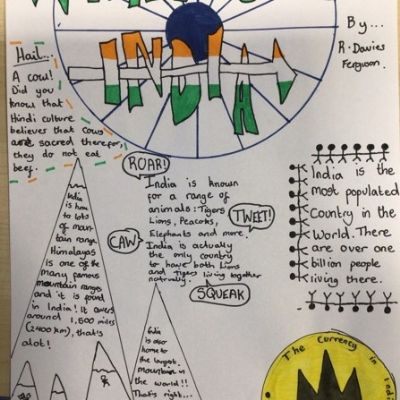 INDIA
By...
R. Davies
Ferguson.
Hail...
A cow!
Did you
know that
Hindi culture
believes that cows
are sacred therefor,
they do not eat
beef.
ROAR!
India is known
for a range of
animals: Tigers
Lions, Peacocks,
Elephants and more!
India is actually
the only country
to have both Lions
and Tigers living together
natrually.
TWEET!
CAW
SQUEAK
India is the
most populated
Country in the
World. There
are over one
billion people
living there.
India
is home
to lots
of moun-
tain range.
Himalayas
is one of the
many famous
mountain ranges
and it is found
in India! It covers
around 1,500 miles
(2400 km), that's
alot!
India
is also
home to
the largest
mountain in
the world!!
That's right...
The Currency in Indi